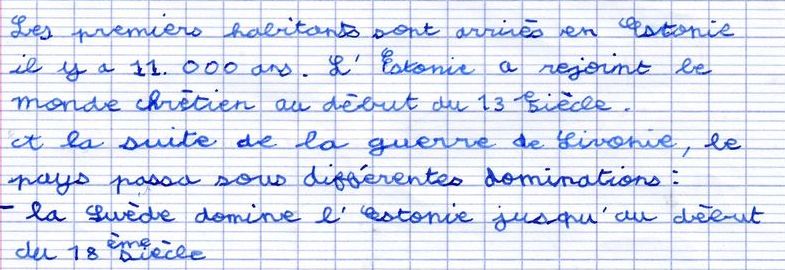 Les premiers habitants sont arrivés en Estonie
il y a 11.000 ans. L'Estonie a rejoint le
monde chrétien au début du 13 siècle.
A la suite de la guerre de Livonie, le
pays passa sous différentes dominations :
- la Suède domine l'Estonie jusqu'au début
du 18 ème siècle